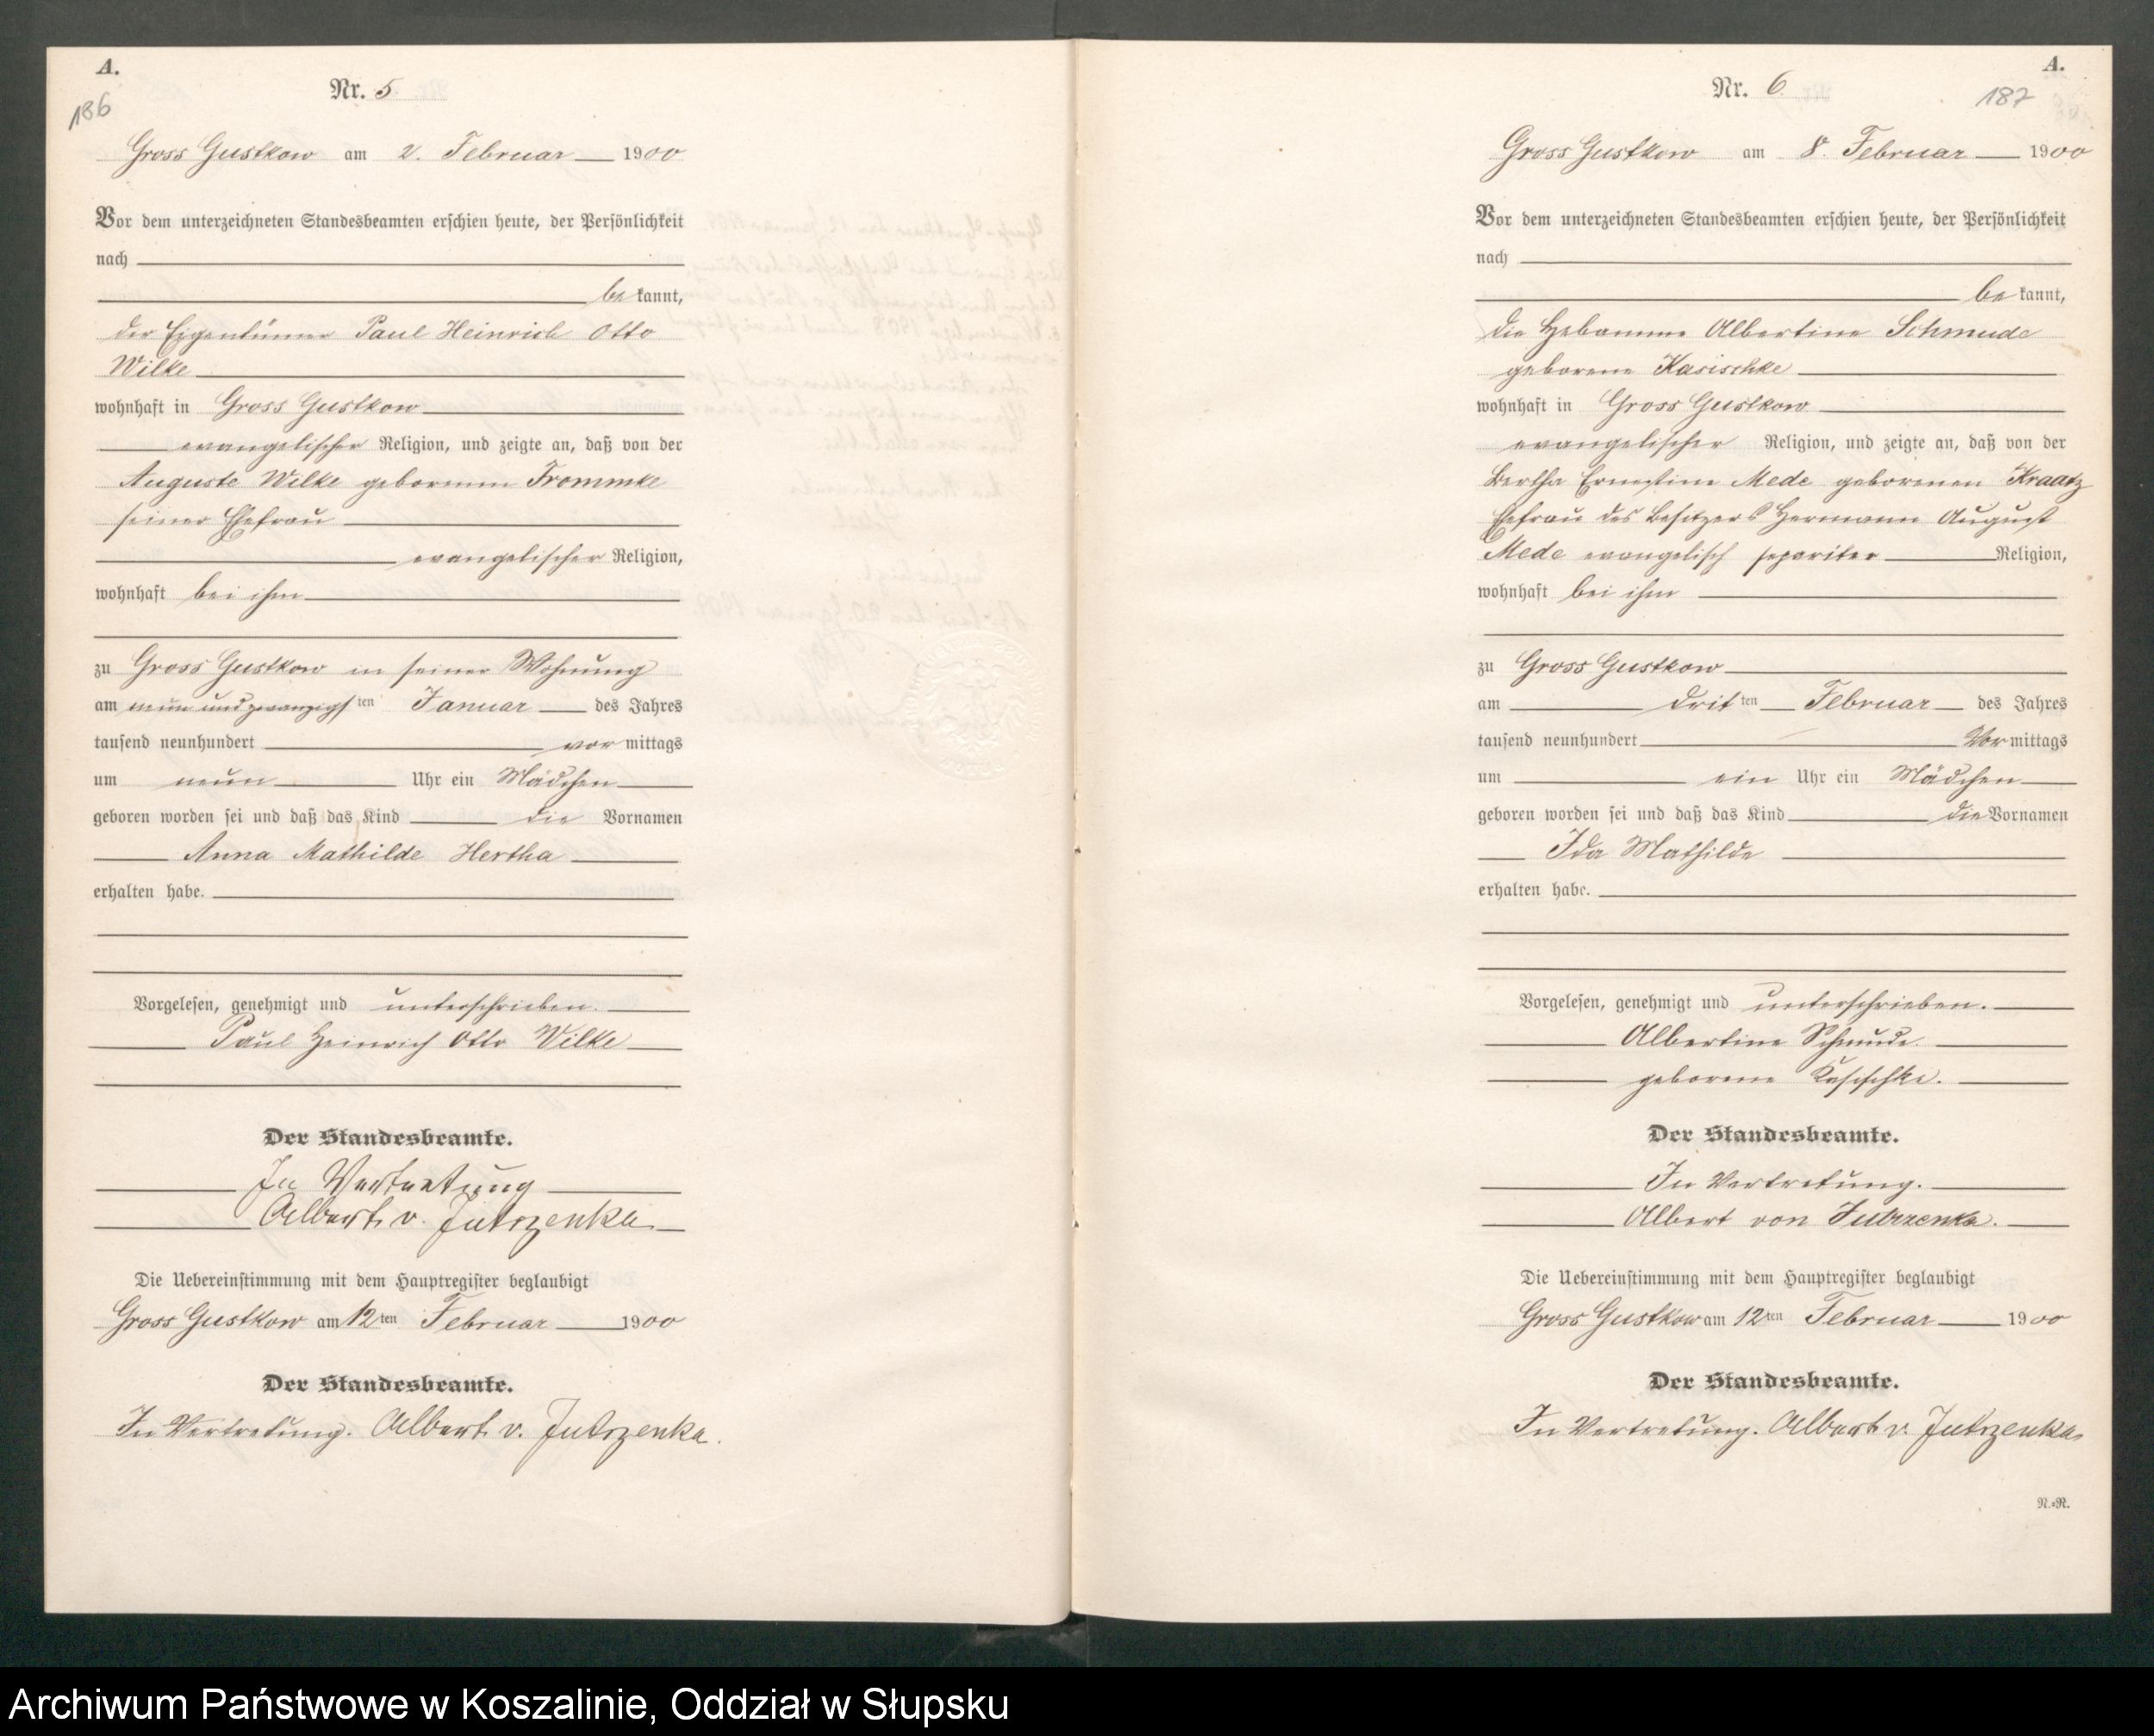 A.
186
Nr. 5
Gross Gustkow am 2. Februar 1900
Vor dem unterzeichneten Standesbeamten erschien heute, der Persönlichkeit
nach
bekannt,
der Eigentümer Paul Heinrich Otto
Wilke
wohnhaft in Gross Gustkow
evangelischer Religion, und zeigte an, daß von der
Auguste Wilke geborenen Frommke
seiner Ehefrau
evangelischer Religion,
wohnhaft bei ihm
zu Gross Gustkow in seiner Wohnung
am neun und zwanzigsten Januar des Jahres
tausend neunhundert vor mittags
um neun Uhr ein Mädchen
geboren worden sei und daß das Kind die Vornamen
Anna Mathilde Hertha
erhalten habe.
Vorgelesen, genehmigt und unterschrieben.
Paul Heinrich Otto Wilke
Der Standesbeamte.
In Vertretung
Albert v. Jutrzenka
Die Uebereinstimmung mit dem Hauptregister beglaubigt
Gross Gustkow am 12ten Februar 1900
Der Standesbeamte.
In Vertretung. Albert v. Jutrzenka.
A.
187
Nr. 6
Gross Gustkow am 8. Februar 1900
Vor dem unterzeichneten Standesbeamten erschien heute, der Persönlichkeit
nach
bekannt,
die Hebamme Albertine Schmude
geborene Kasischke
wohnhaft in Gross Gustkow
evangelischer Religion, und zeigte an, daß von der
Bertha Ernestine Mede geborenen Kraatz
Ehefrau des Besitzers Hermann August
Mede evangelisch separiter Religion,
wohnhaft bei ihm
zu Gross Gustkow
am dritten Februar des Jahres
tausend neunhundert Vor mittags
um ein Uhr ein Mädchen
geboren worden sei und daß das Kind die Vornamen
Ida Mathilde
erhalten habe.
Vorgelesen, genehmigt und unterschrieben.
Albertine Schmude.
geborene Kasischke.
Der Standesbeamte.
In Vertretung.
Albert von Jutrzenka.
Die Uebereinstimmung mit dem Hauptregister beglaubigt
Gross Gustkow am 12ten Februar 1900
Der Standesbeamte.
In Vertretung. Albert v. Jutrzenka
N.=R.
Archiwum Państwowe w Koszalinie, Oddział w Słupsku